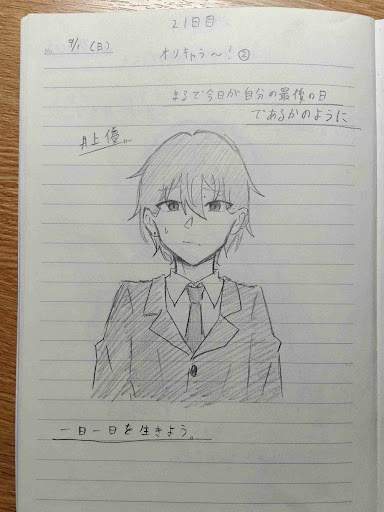 21日目
No. 9/1 (日)
オリキャラ〜!②
まるで今日が自分の最後の日
であるかのように
井上優
一日一日を生きよう。